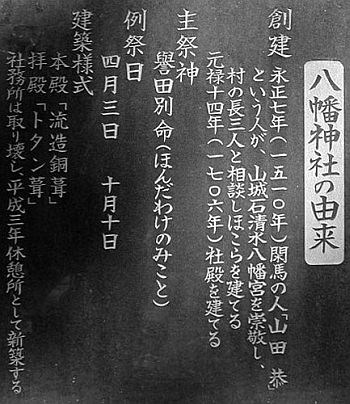 八幡神社の由来
創建 永正七年(一五一〇年)関馬の人「山田 恭」
という人が、山城石清水八幡宮を崇敬し、
村の長三人と相談しほこらを建てる
元禄十四年(一七〇六年)社殿を建てる
主祭神
譽田別命(ほんだわけのみこと)
例祭日
四月三日 十月十日
建築様式
本殿「流造銅葺」
拝殿「トタン葺」
社務所は取り壊し、平成三年休憩所として新築する